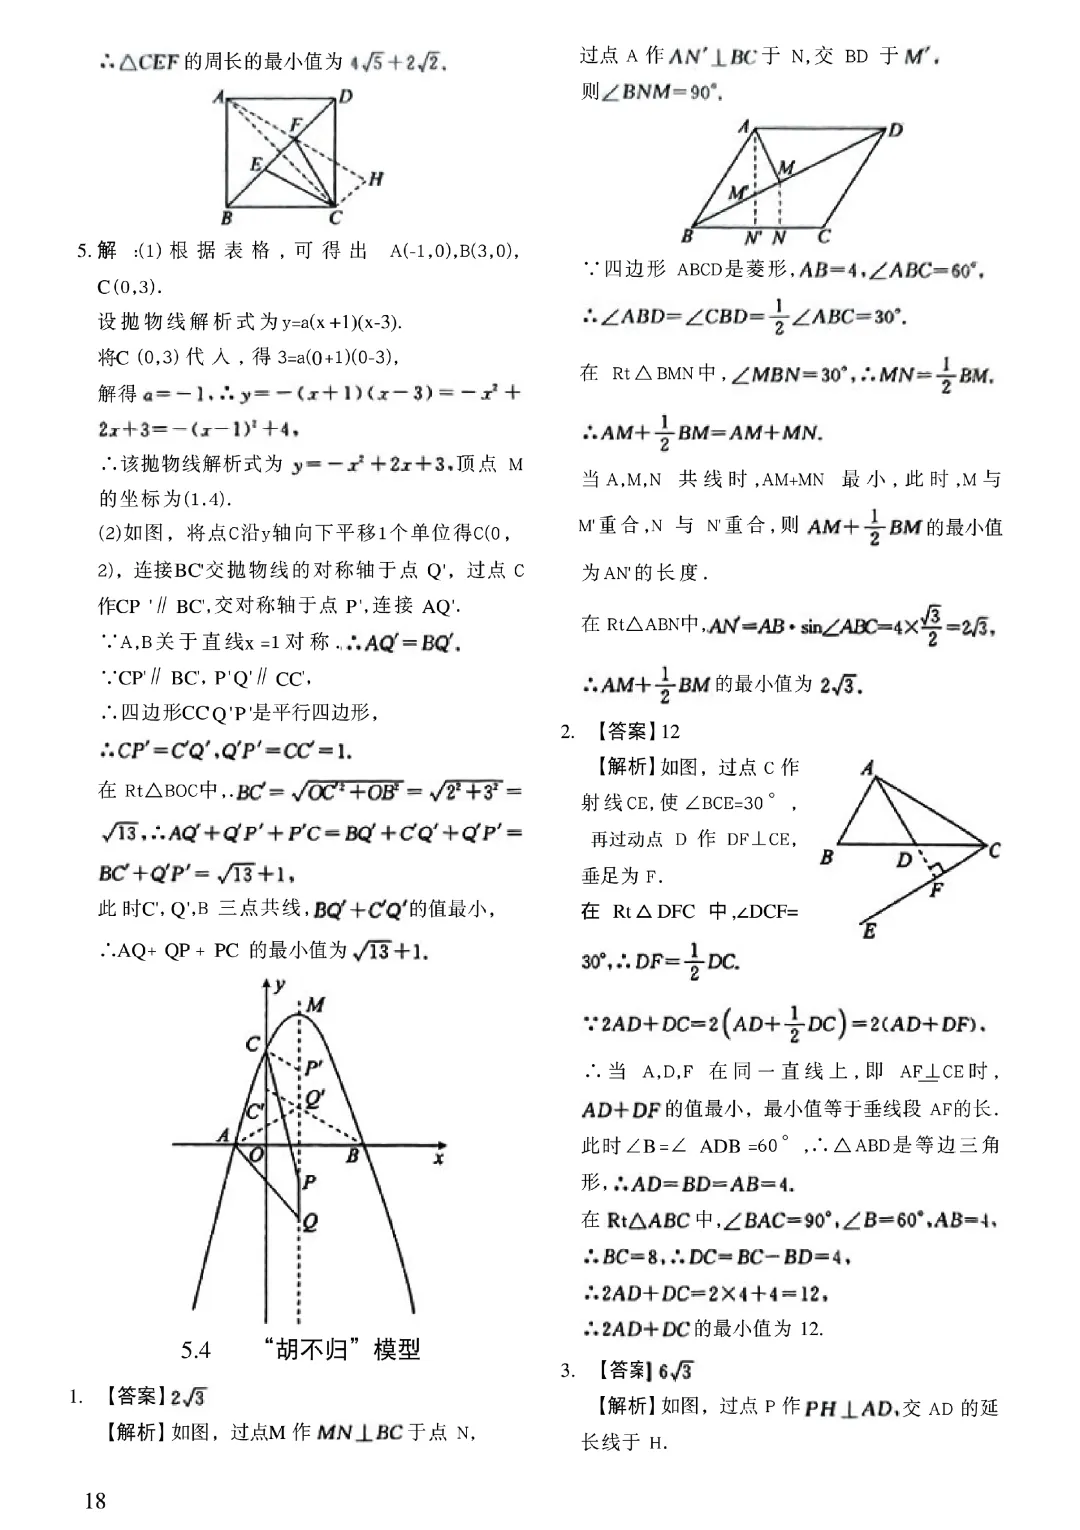 ∴△CEF的周长的最小值为 4√5+2√2.
A
D
F
E
H
B
C
5.解 :(1)根据表格,可得出 A(-1,0),B(3,0),
C(0,3).
设抛物线解析式为y=a(x+1)(x-3).
将C (0,3)代入,得3=a(0+1)(0-3),
解得a=-1,∴y=-(x+1)(x-3)=-x²+
2x+3=-(x-1)²+4,
∴该抛物线解析式为 y=-x²+2x+3,顶点 M
的坐标为(1.4).
(2)如图，将点C沿y轴向下平移1个单位得C(0，
2)，连接BC'交抛物线的对称轴于点 Q'，过点 C
作CP '∥ BC',交对称轴于点 P',连接 AQ'.
∵A,B关于直线x =1对称.∴AQ'=BQ'.
∵CP'∥ BC'，P'Q'∥ CC'，
∴四边形CCQ'P'是平行四边形，
∴CP'=C'Q',Q'P'=CC'=1.
在 Rt△BOC中,.BC'=√(OC'²+OB²)=√(2²+3²)=
√13,∴AQ'+Q'P'+P'C=BQ'+C'Q'+Q'P'=
BC'+Q'P'=√13+1,
此时C'，Q',B 三点共线,BQ'+C'Q'的值最小，
∴AQ+ QP + PC 的最小值为 √13+1.
y
M
C
P'
C'
Q'
A
O
B
x
P
Q
5.4 “胡不归”模型
1. 【答案】2√3
【解析】如图，过点M 作 MN⊥BC于点 N,
过点 A 作AN'⊥BC于 N,交 BD 于M'.
则∠BNM=90°,
A
D
M
M'
B
N'
N
C
∵四边形 ABCD是菱形,AB=4,∠ABC=60°,
∴∠ABD=∠CBD=1/2∠ABC=30°.
在 Rt△BMN中,∠MBN=30°,∴MN=1/2BM.
∴AM+1/2BM=AM+MN.
当A,M,N 共线时,AM+MN 最小,此时,M与
M'重合,N 与 N'重合,则 AM+1/2BM的最小值
为AN'的长度.
在 Rt△ABN中,AN'=AB·sin∠ABC=4×√3/2=2√3,
∴AM+1/2BM的最小值为 2√3.
2. 【答案】12
【解析】如图，过点 C 作
射线CE,使 ∠BCE=30°，
再过动点 D 作 DF⊥CE,
垂足为 F.
A
B
D
C
F
E
在 Rt△DFC 中,∠DCF=
30°,∴DF=1/2DC.
∵2AD+DC=2(AD+1/2DC)=2(AD+DF),
∴当 A,D,F 在同一直线上,即 AF⊥CE时,
AD+DF的值最小，最小值等于垂线段 AF的长.
此时∠B=∠ ADB =60°,∴△ABD是等边三角
形,∴AD=BD=AB=4.
在 Rt△ABC中,∠BAC=90°,∠B=60°,AB=4,
∴BC=8,∴DC=BC-BD=4,
∴2AD+DC=2×4+4=12,
∴2AD+DC的最小值为 12.
3. 【答案】6√3
【解析】如图，过点 P 作PH⊥AD,交 AD 的延
长线于 H.
18